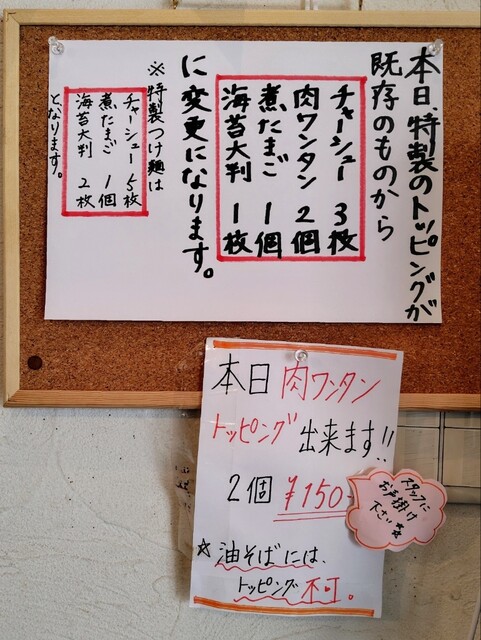 本日、特製のトッピングが
既存のものから
チャーシュー 3枚
肉ワンタン 2個
煮たまご 1個
海苔大判 1枚
に変更になります。
※特製つけ麺は
チャーシュー 5枚
煮たまご 1個
海苔大判 2枚
となります。
本日肉ワンタン
トッピング出来ます!!
2個 ¥150-
スタッフに
お声掛け
下さい☆★
☆油そばには、
トッピング不可。